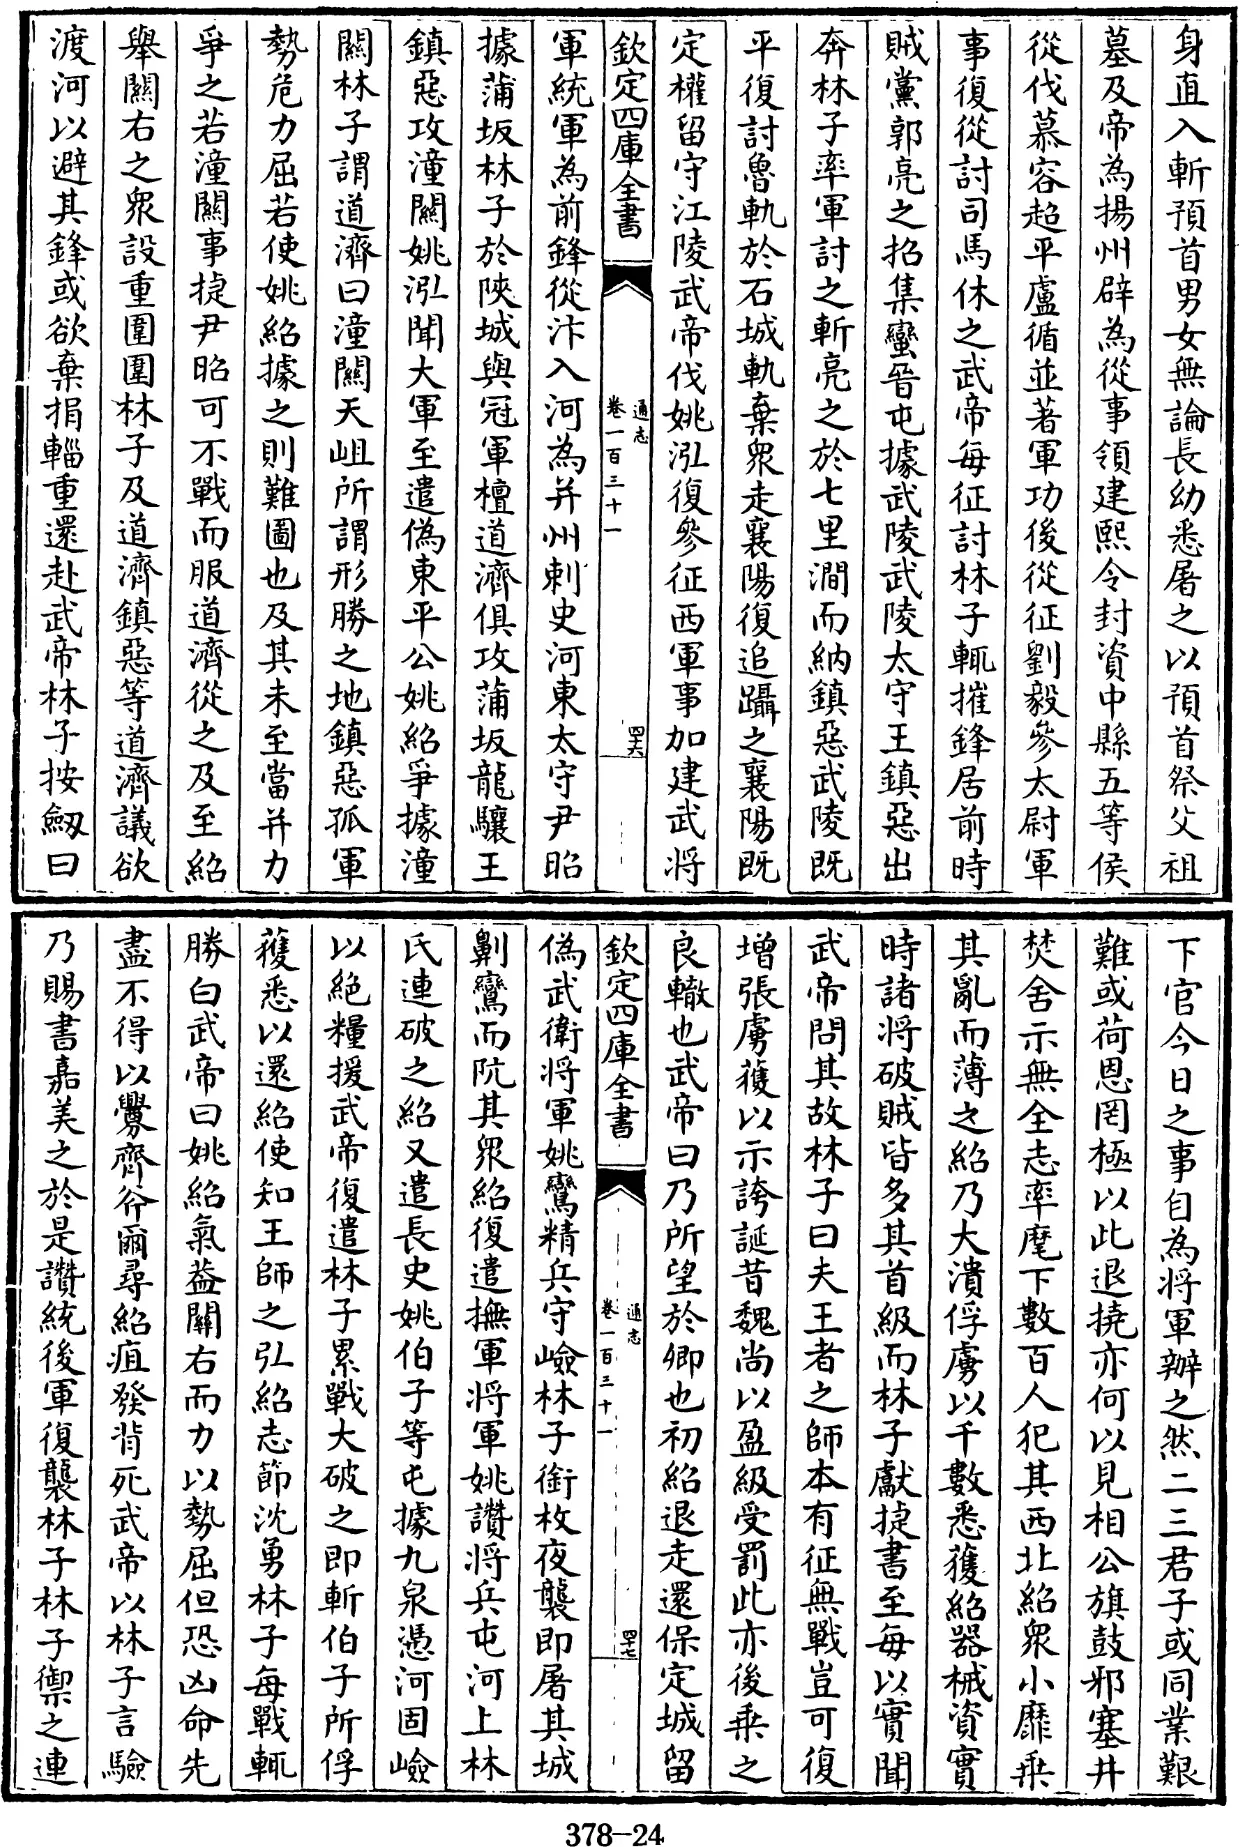 身直入斬預首男女無論長幼悉屠之以預首祭父祖
墓及帝為揚州辟為從事領建熙令封資中縣五等侯
從伐慕容超平盧循並著軍功後從征劉毅參太尉軍
事復從討司馬休之武帝每征討林子輒摧鋒居前時
賊黨郭亮之招集蠻晉屯據武陵武陵太守王鎮惡出
奔林子率軍討之斬亮之於七里澗而納鎮惡武陵既
平復討魯軌於石城軌棄衆走襄陽復追躡之襄陽既
定權留守江陵武帝伐姚泓復參征西軍事加建武將
欽定四庫全書
通志
卷一百三十一
四十六
軍統軍為前鋒從汴入河為并州刺史河東太守尹昭
據蒲坂林子於陝城與冠軍檀道濟俱攻蒲坂龍驤王
鎮惡攻潼關姚泓聞大軍至遣偽東平公姚紹爭據潼
關林子謂道濟曰潼關天岨所謂形勝之地鎮惡孤軍
勢危力屈若使姚紹據之則難圖也及其未至當并力
爭之若潼關事捷尹昭可不戰而服道濟從之及至紹
舉關右之衆設重圍圍林子及道濟鎮惡等道濟議欲
渡河以避其鋒或欲棄捐輜重還赴武帝林子按劔曰
下官今日之事自為將軍辦之然二三君子或同業艱
難或荷恩罔極以此退撓亦何以見相公旗鼓邪塞井
焚舍示無全志率麾下數百人犯其西北紹衆小靡乗
其亂而薄之紹乃大潰俘虜以千數悉獲紹器械資實
時諸將破賊皆多其首級而林子獻捷書至每以實聞
武帝問其故林子曰夫王者之師本有征無戰豈可復
增張虜獲以示誇誕昔魏尚以盈級受罰此亦後乗之
良轍也武帝曰乃所望於卿也初紹退走還保定城留
欽定四庫全書
通志
卷一百三十一
四十七
偽武衛將軍姚鸞精兵守嶮林子銜枚夜襲即屠其城
劓鸞而阬其衆紹復遣撫軍將軍姚讚將兵屯河上林
氏連破之紹又遣長史姚伯子等屯據九泉憑河固嶮
以絶糧援武帝復遣林子累戰大破之即斬伯子所俘
獲悉以還紹使知王師之弘紹志節沈勇林子每戰輒
勝白武帝曰姚紹氣葢關右而力以勢屈但恐凶命先
盡不得以釁齊斧爾尋紹疽發背死武帝以林子言驗
乃賜書嘉美之於是讚統後軍復襲林子林子禦之連
378-24